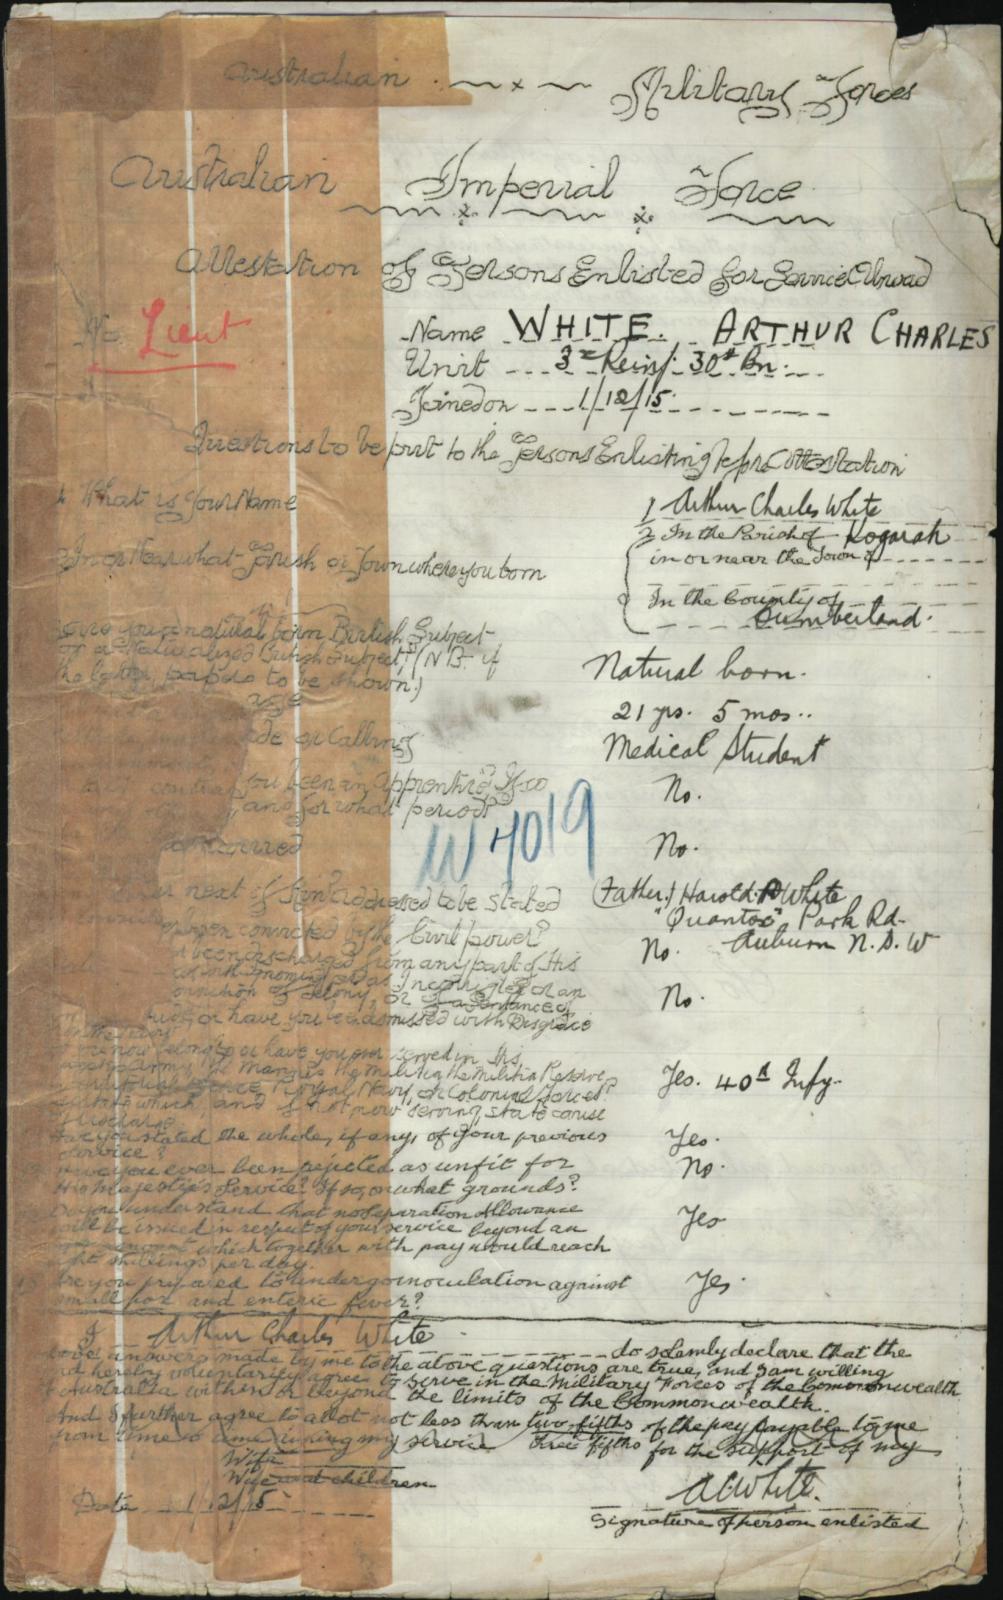 Australian Military Forces
Australian Imperial Force
Attestation of Persons Enlisted for Service Abroad
No. Lieut
Name WHITE. ARTHUR CHARLES
Unit 3rd Reinf. 30th Bn.
Joined on 1/12/15
Questions to be put to the Persons Enlisting before Attestation
1. What is your Name
1 Arthur Charles White
2 In or Near what Parish or Town where you born
2 In the Parish of Kogarah
in or near the Town of
In the County of
Cumberland.
are you a natural born British Subject
or a Naturalized British Subject? (N.B. if
the latter, papers to be shown.)
Natural born.
age
21 yrs. 5 mos..
Trade or Calling
Medical Student
you been an apprentice If so
and for what period?
No.
W4019
married
No.
next of Kin? addressed to be stated
(Father.) Harold White
"Quantox" Park Rd-
Auburn N.S.W
been convicted by the Civil power?
No.
been discharged from any part of His
with ignominy or as Incorrigible or an
of felony, or of a Sentence of
or have you been dismissed with Disgrace
No.
now belong to or have you ever served in His
Army, the Marines the Militia, the Militia Reserve,
Royal Navy, or Colonial Forces?
which, and if not now serving, state cause
Yes. 40th Infy.
Have you stated the whole, if any, of your previous
service?
Yes.
Have you ever been rejected as unfit for
His Majesty's Service? If so, on what grounds?
No.
Do you understand that no Separation Allowance
will be issued in respect of your service beyond an
amount which together with pay would reach
eight shillings per day.
Yes
Are you prepared to undergo inoculation against
small pox and enteric fever?
Yes.
I Arthur Charles White do solemly declare that the
above answers made by me to the above questions are true, and I am willing
and hereby voluntarily agree to serve in the Military Forces of the Commonwealth
Australia within or beyond the limits of the Commonwealth.
And I further agree to allot not less than two fifths of the pay payable to me
from time to time during my service three fifths for the support of my
Wife
Wife and children
Date 1/12/15
ACWhite.
Signature of person enlisted